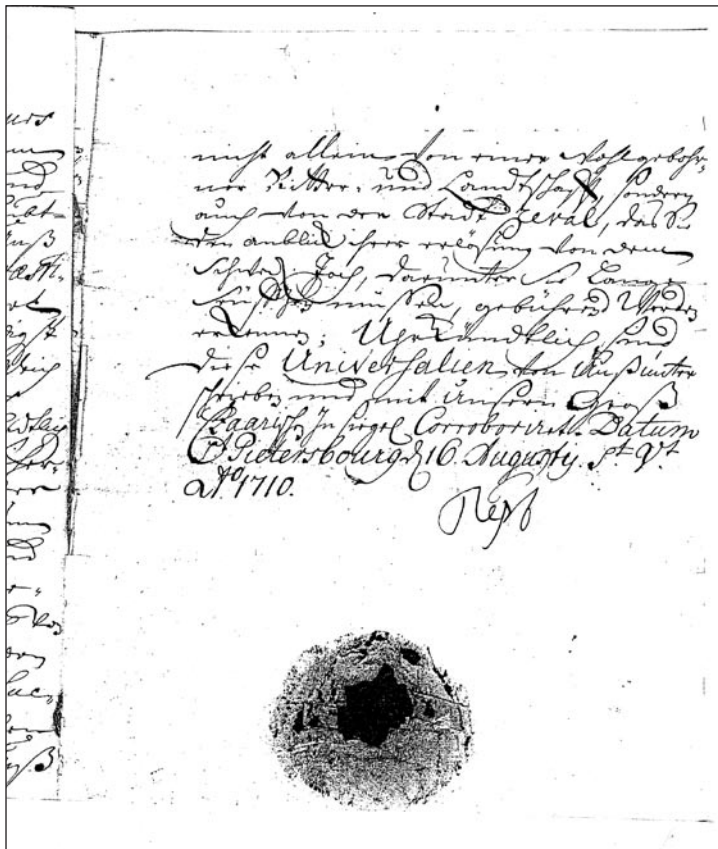 nicht allein von einer Wohlgebohr-
ner Ritter- und Landtschafft, sondern
auch von der Stadt Reval, das Sie
den anblick ihrer erlösung von dem
Schwed. Joch, darunter sie lange
seufftzen müssen, gebührend werden
erkennen; Uhrkündtlich sind
diese Universalien von Unß unter
schrieben und mit Unsern Groß
Czaarisch. In Siegel Corroborirt. Datum
St Pietersbourg d 16. Augusty. St. V.
Aō 1710.